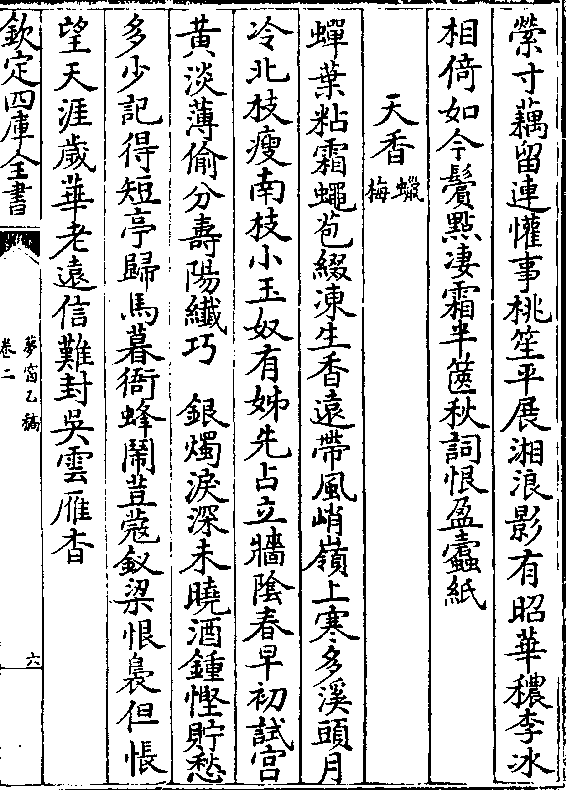 縈寸藕留連懽事桃笙平展湘浪影有昭華穠李冰
相倚如今鬢點凄霜半篋秋詞恨盈蠧紙
天香蠟梅
蟬葉粘霜蠅苞綴凍生香遠帶風峭嶺上寒多溪頭月
冷北枝瘦南枝小玉奴有姊先占立牆陰春早初試宫
黄淡薄偷分壽陽纖巧　銀燭淚深未曉酒鍾慳貯愁
多少記得短亭歸馬暮衙蜂鬧荳蔻釵梁恨裊但悵
望天涯歲華老遠信難封吳雲雁杳
欽定四庫全書
夢窗乙稿
卷二
六